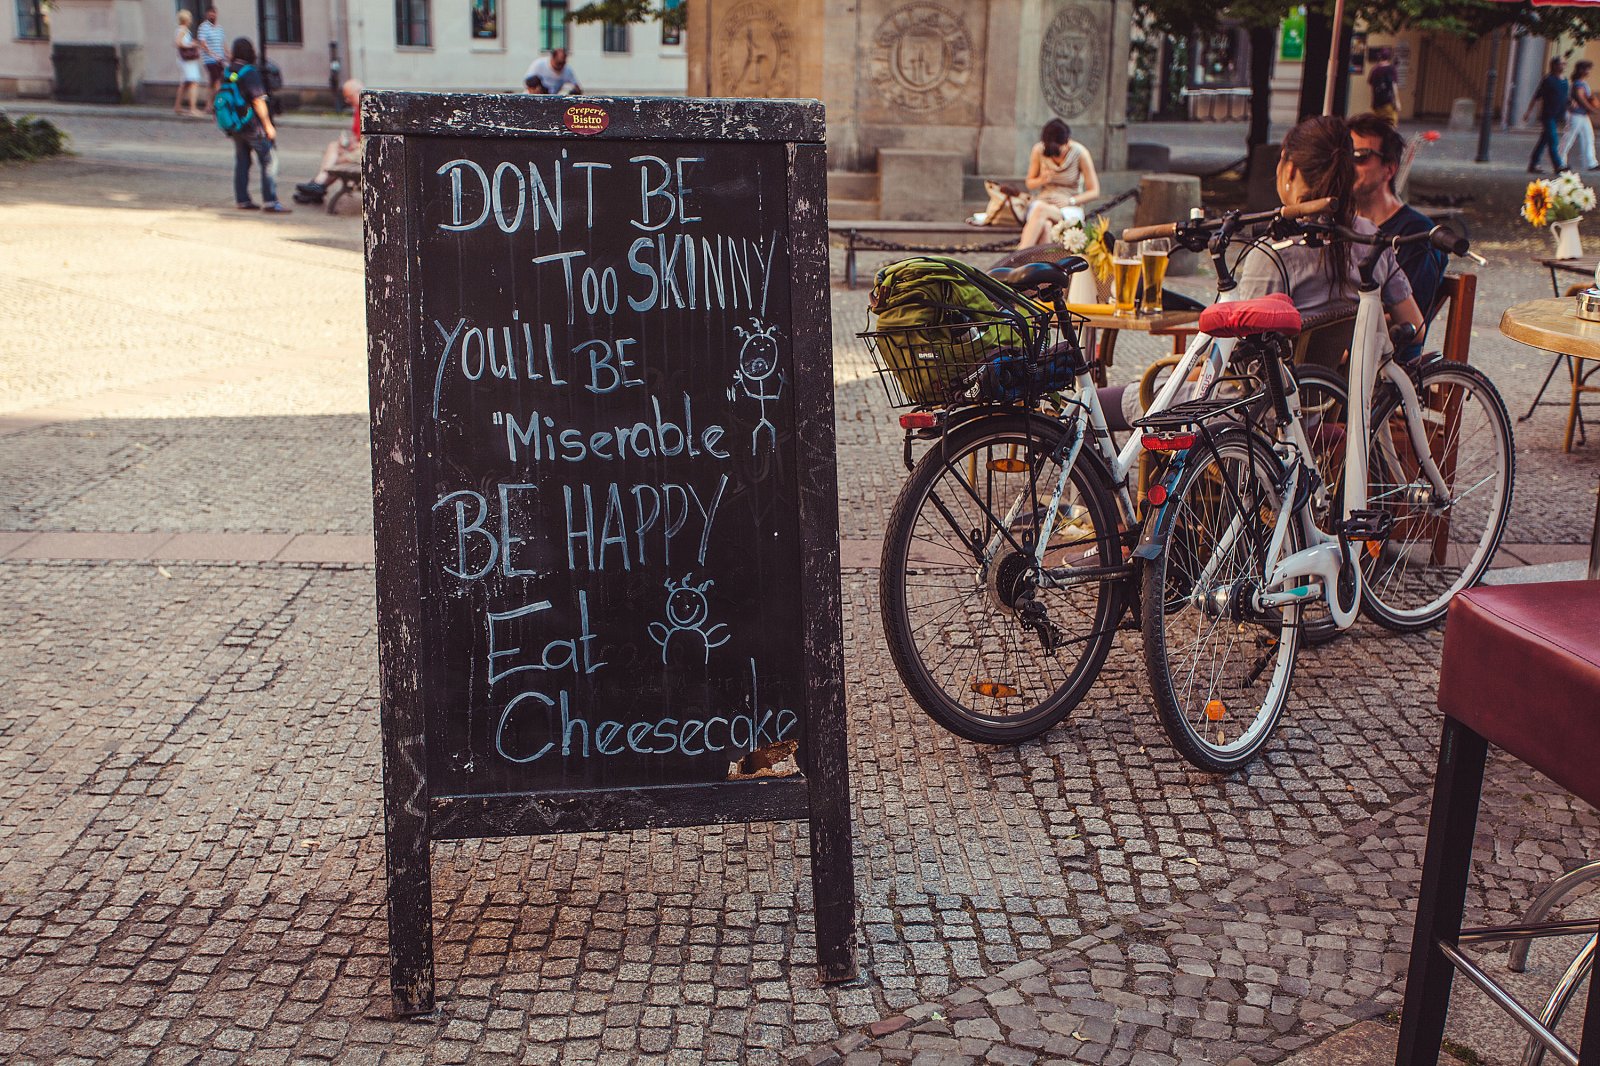 Creperi
Bistro
Coffee & Snack's
DON'T BE
Too SKINNY
YOU'LL BE
"Miserable
BE HAPPY
Eat
Cheesecake
BASIL